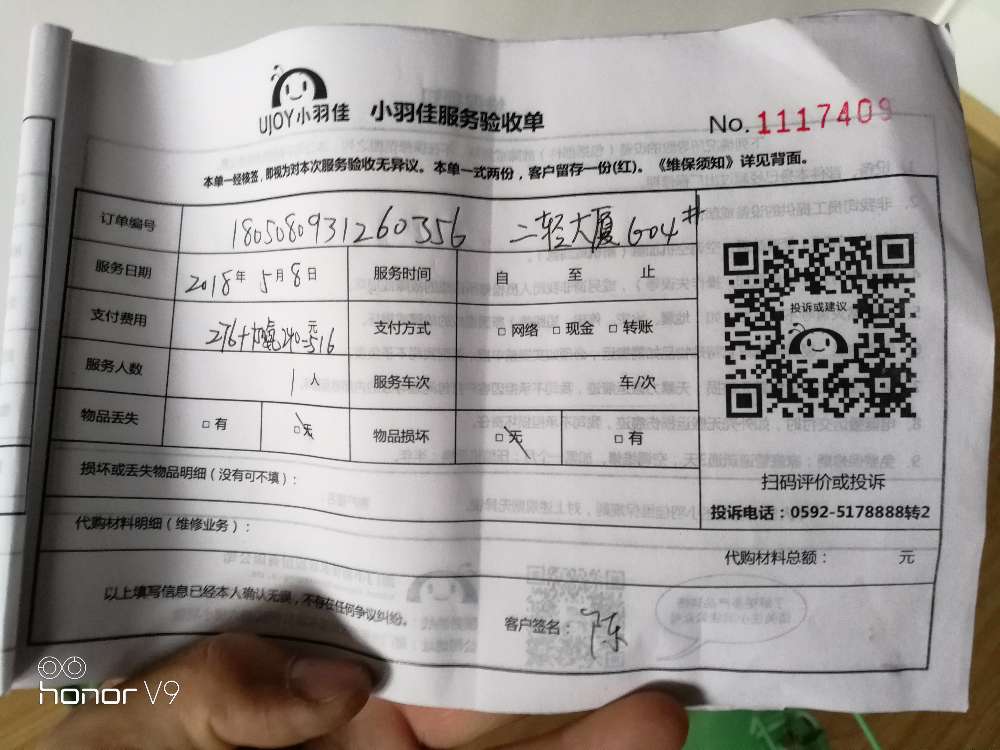 UJOY小羽佳 小羽佳服务验收单 No. 1117409
本单一经核签，即视为对本次服务验收无异议。本单一式两份，客户留存一份(红)。《维保须知》详见背面。
订单编号 180508093126035​6 二轻大厦604#
服务日期 2018年 5月8日 服务时间 自 至 止
支付费用 276+加氟240=516元 支付方式 □网络 □现金 □转账
服务人数 1人 服务车次 车/次
物品丢失 □有 □无 物品损坏 □无 □有
损坏或丢失物品明细（没有可不填）：
代购材料明细（维修业务）：
投诉或建议
扫码评价或投诉
投诉电话：0592-5178888转2
代购材料总额： 元
以上填写信息已经本人确认无误，不存在任何争议纠纷。
客户签名： 陈
honor V9